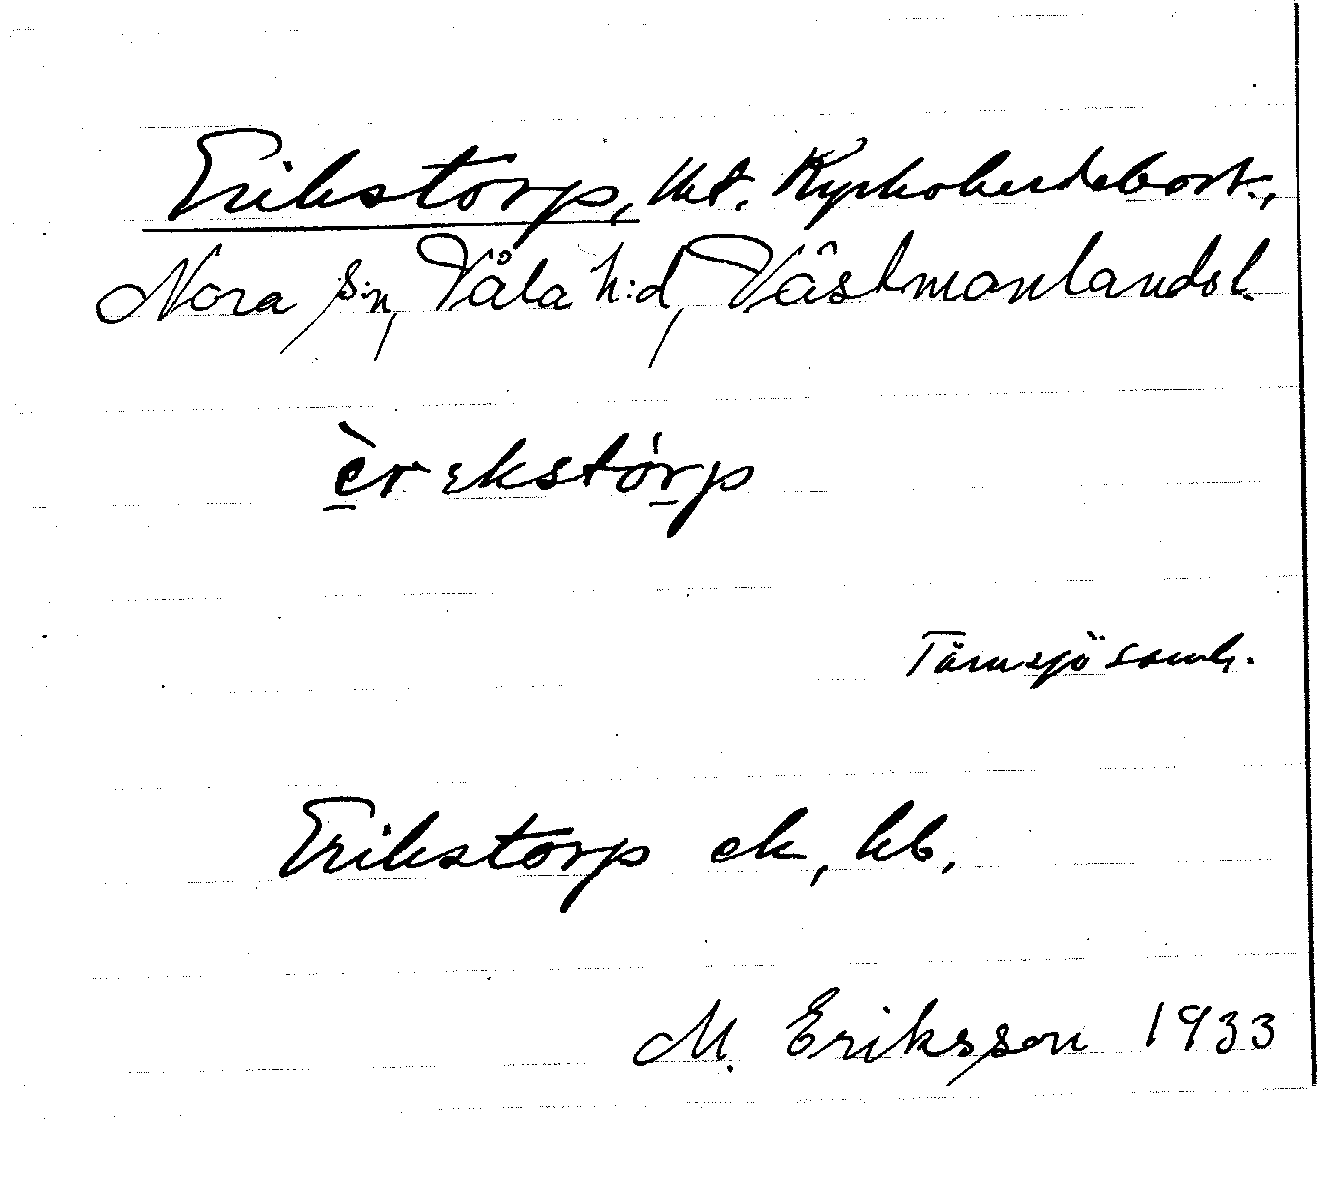 Erikstorp, tkt. Kyrkoherdebost.,
Nora s:n, Våla h:d, Västmanlands l.
èrekstórp
Tärnsjö samh.
Erikstorp ek, kb.
M. Eriksson 1933